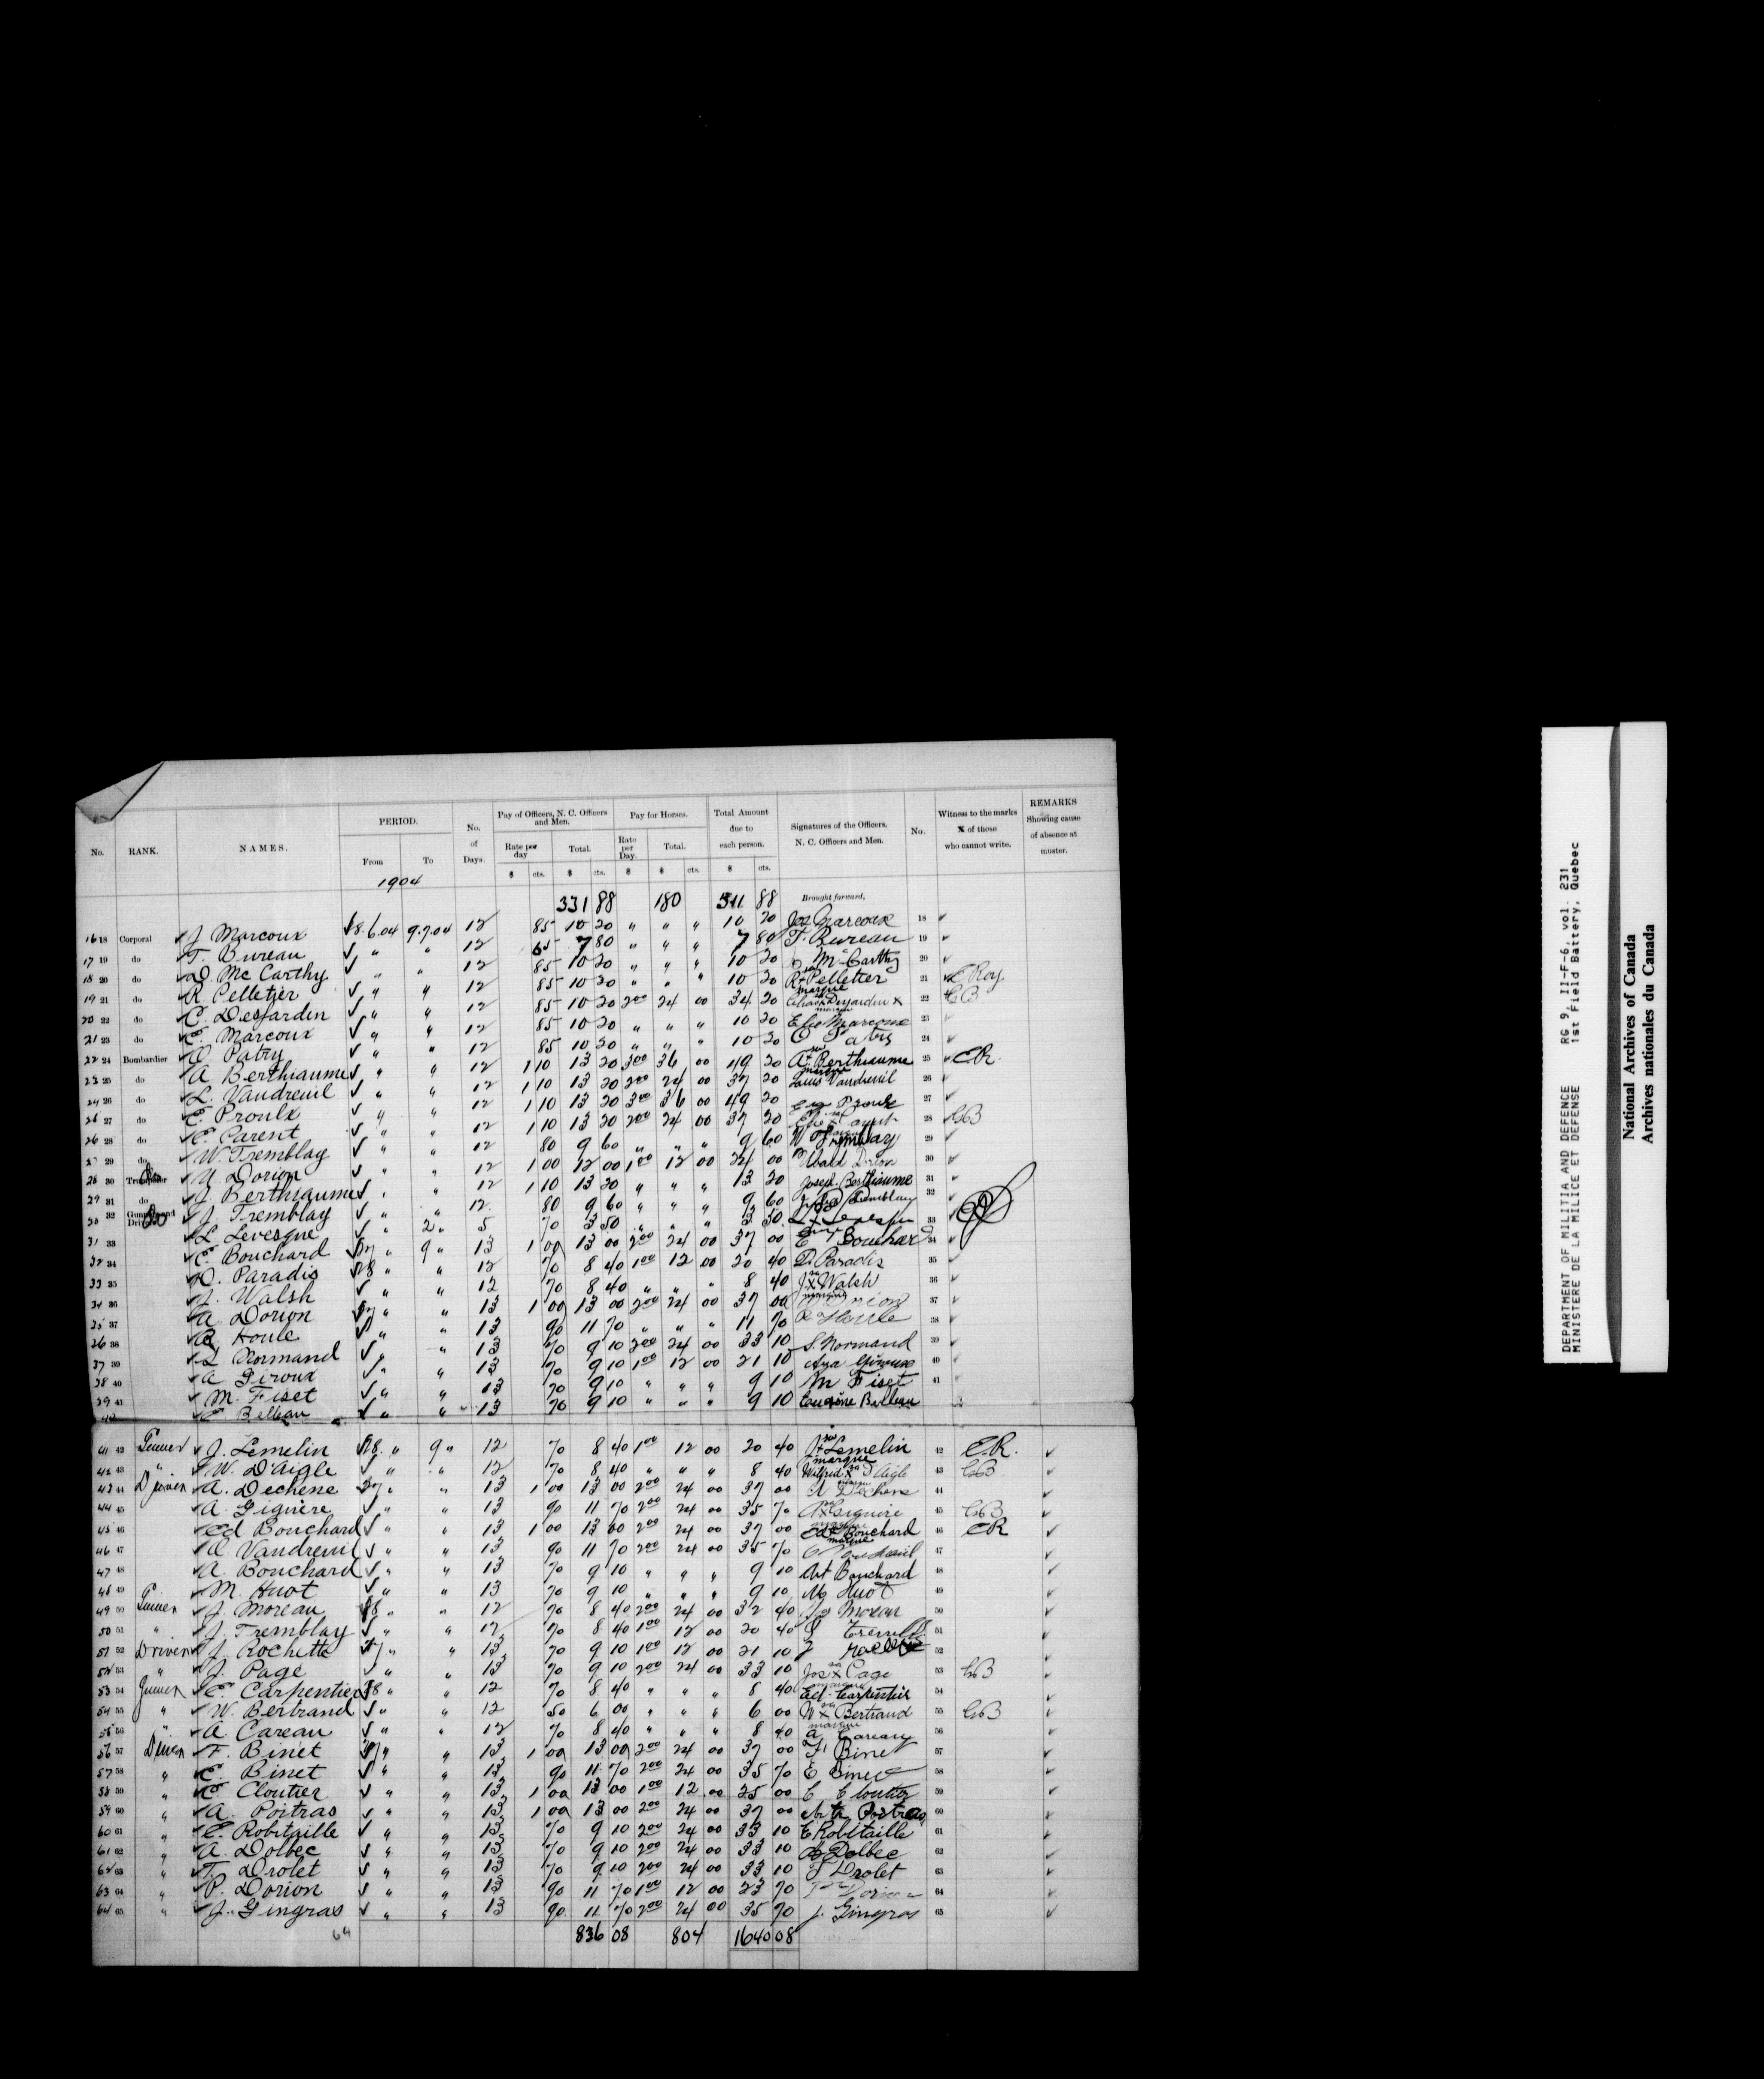 No. RANK. NAMES. PERIOD. No. of Days. Pay of Officers, N. C. Officers and Men. Pay for Horses. Total Amount due to each person. Signatures of the Officers, N. C. Officers and Men. No. Witness to the marks X of those who cannot write. REMARKS Showing cause of absence at muster.
From To Rate per day Total. Rate per Day. Total.
1904 $ cts. $ cts. $ $ cts. $ cts.
331 88 180 511 88 Brought forward,
16 18 Corporal J. Marcoux 28.6.04 9.7.04 12 85 10 20 " " " 10 20 Jos Marcoux 18
17 19 do T. Bureau " " 12 65 7 80 " " " 7 80 T. Bureau 19
18 20 do D. Mc Carthy " " 12 85 10 20 " " " 10 20 D McCarthy 20
19 21 do R Pelletier " " 12 85 10 20 " " " 10 20 R + Pelletier marque 21 E Roy
20 22 do C. Desjardin " " 12 85 10 20 2 00 24 00 34 20 Desjardin x 22
21 23 do E. Marcoux " " 12 85 10 20 " " " 10 20 Marcoux 23
22 24 Bombardier O Patry " " 12 85 10 20 " " " 10 20 O Patry 24
23 25 do A Berthiaume " " 12 1 10 13 20 3 00 36 00 49 20 A + Berthiaume 25 E.R.
24 26 do L. Vaudreuil " " 12 1 10 13 20 2 00 24 00 37 20 Louis Vaudreuil 26
27 do E. Proulx " " 12 1 10 13 20 3 00 36 00 49 20 Proulx 27
26 28 do E. Parent " " 12 1 10 13 20 2 00 24 00 37 20 28
29 do W. Tremblay " " 12 80 9 60 " " " 9 60 W Tremblay 29
28 30 Trumpeter U. Dorion " " 12 1 00 12 00 1 00 12 00 24 00 Ubald Dorion 30
29 31 do J. Berthiaume " " 12 1 10 13 20 " " " 13 20 Joseph Berthiaume 31
30 32 Gunners and Drivers J. Tremblay " " 12 80 9 60 " " " 9 60 Tremblay 32
31 33 L Levesque " 2 " 5 70 3 50 " " " 3 50 33
32 34 E. Bouchard 27 " 9 " 13 1 00 13 00 2 00 24 00 37 00 E Bouchard 34
33 35 D. Paradis 28 " " 12 70 8 40 1 00 12 00 20 40 D. Paradis 35
34 36 J. Walsh " " 12 70 8 40 " " " 8 40 J x Walsh 36
35 37 A Dorion 27 " " 13 1 00 13 00 2 00 24 00 37 00 37
38 Houle " " 13 90 11 70 " " " 11 70 Houle 38
37 39 L Normand " " 13 70 9 10 2 00 24 00 33 10 S. Normand 39
38 40 A Giroux " " 13 70 9 10 1 00 12 00 21 10 Giroux 40
39 41 M. Fiset " " 13 70 9 10 " " " 9 10 M Fiset 41
40 E Belleau " " 13 70 9 10 " " " 9 10 Eugène Belleau
41 42 Gunner J. Lemelin 28. " 9 " 12 70 8 40 1 00 12 00 20 40 J + Lemelin marque 42 E.R.
42 43 " W. D'Aigle " " 12 70 8 40 " " " 8 40 Wilfrid x D'Aigle 43
43 44 Driver A. Dechene 27 " " 13 1 00 13 00 2 00 24 00 37 00 A Dechene 44
44 45 A. Giguère " " 13 90 11 70 2 00 24 00 35 70 A x Giguère 45
45 46 Ed Bouchard " " 13 1 00 13 00 2 00 24 00 37 00 Ed + Bouchard marque 46 ER
46 47 O. Vaudreuil " " 13 90 11 70 2 00 24 00 35 70 47
47 48 A. Bouchard " " 13 70 9 10 " " " 9 10 Art Bouchard 48
48 49 M. Huot " " 13 70 9 10 " " " 9 10 M Huot 49
49 50 Gunner J. Moreau 28 " " 12 70 8 40 2 00 24 00 32 40 Moreau 50
50 51 " J. Tremblay " " 12 70 8 40 1 00 12 00 20 40 51
51 52 Driver J. Rochette 27 " " 13 70 9 10 1 00 12 00 21 10 52
52 53 " J. Page " " 13 70 9 10 2 00 24 00 33 10 Jos x Page 53
53 54 Gunner E. Carpentier 28 " " 12 70 8 40 " " " 8 40 Ed. Carpentier 54
54 55 " W. Bertrand " " 12 50 6 00 " " " 6 00 W x Bertrand marque 55
55 56 " A. Careau " " 12 70 8 40 " " " 8 40 A Careau 56
56 57 Driver F. Binet 27 " " 13 1 00 13 00 2 00 24 00 37 00 F Binet 57
57 58 " E. Binet " " 13 90 11 70 2 00 24 00 35 70 E Binet 58
58 59 " E. Cloutier " " 13 1 00 13 00 1 00 12 00 25 00 E Cloutier 59
59 60 " A. Poitras " " 13 1 00 13 00 2 00 24 00 37 00 Poitras 60
60 61 " E. Robitaille " " 13 70 9 10 2 00 24 00 33 10 E Robitaille 61
61 62 " A. Dolbec " " 13 70 9 10 2 00 24 00 33 10 A Dolbec 62
62 63 " T. Drolet " " 13 70 9 10 2 00 24 00 33 10 T Drolet 63
63 64 " P. Dorion " " 13 90 11 70 1 00 12 00 23 70 Dorion 64
64 65 " J. Gingras " " 13 90 11 70 2 00 24 00 35 70 J. Gingras 65
64 836 08 804 1640 08
DEPARTMENT OF MILITIA AND DEFENCE RG 9, II-F-6, vol. 231
MINISTERE DE LA MILICE ET DEFENSE 1st Field Battery, Quebec
National Archives of Canada
Archives nationales du Canada